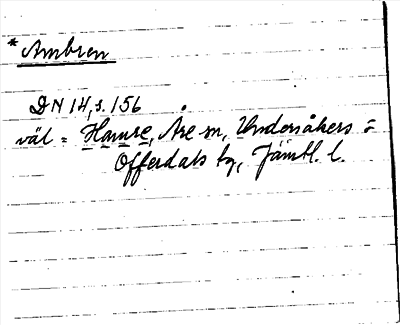 * Ambren
DN 14, s. 156
väl = Hamre, Åre sn, Undersåkers =
Offerdals tg, Jämtl. l.